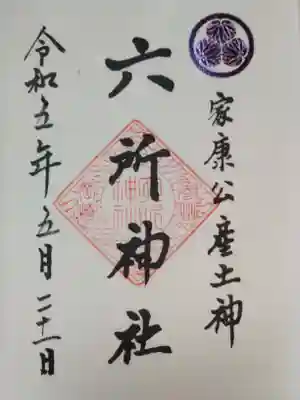 家康公産土神
六所神社
令和五年五月二十一日